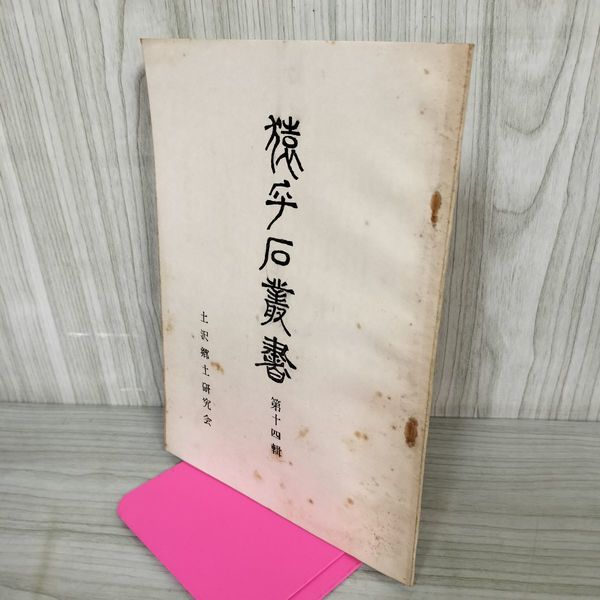 猿ヶ石叢書
第十四輯
土沢郷土研究会